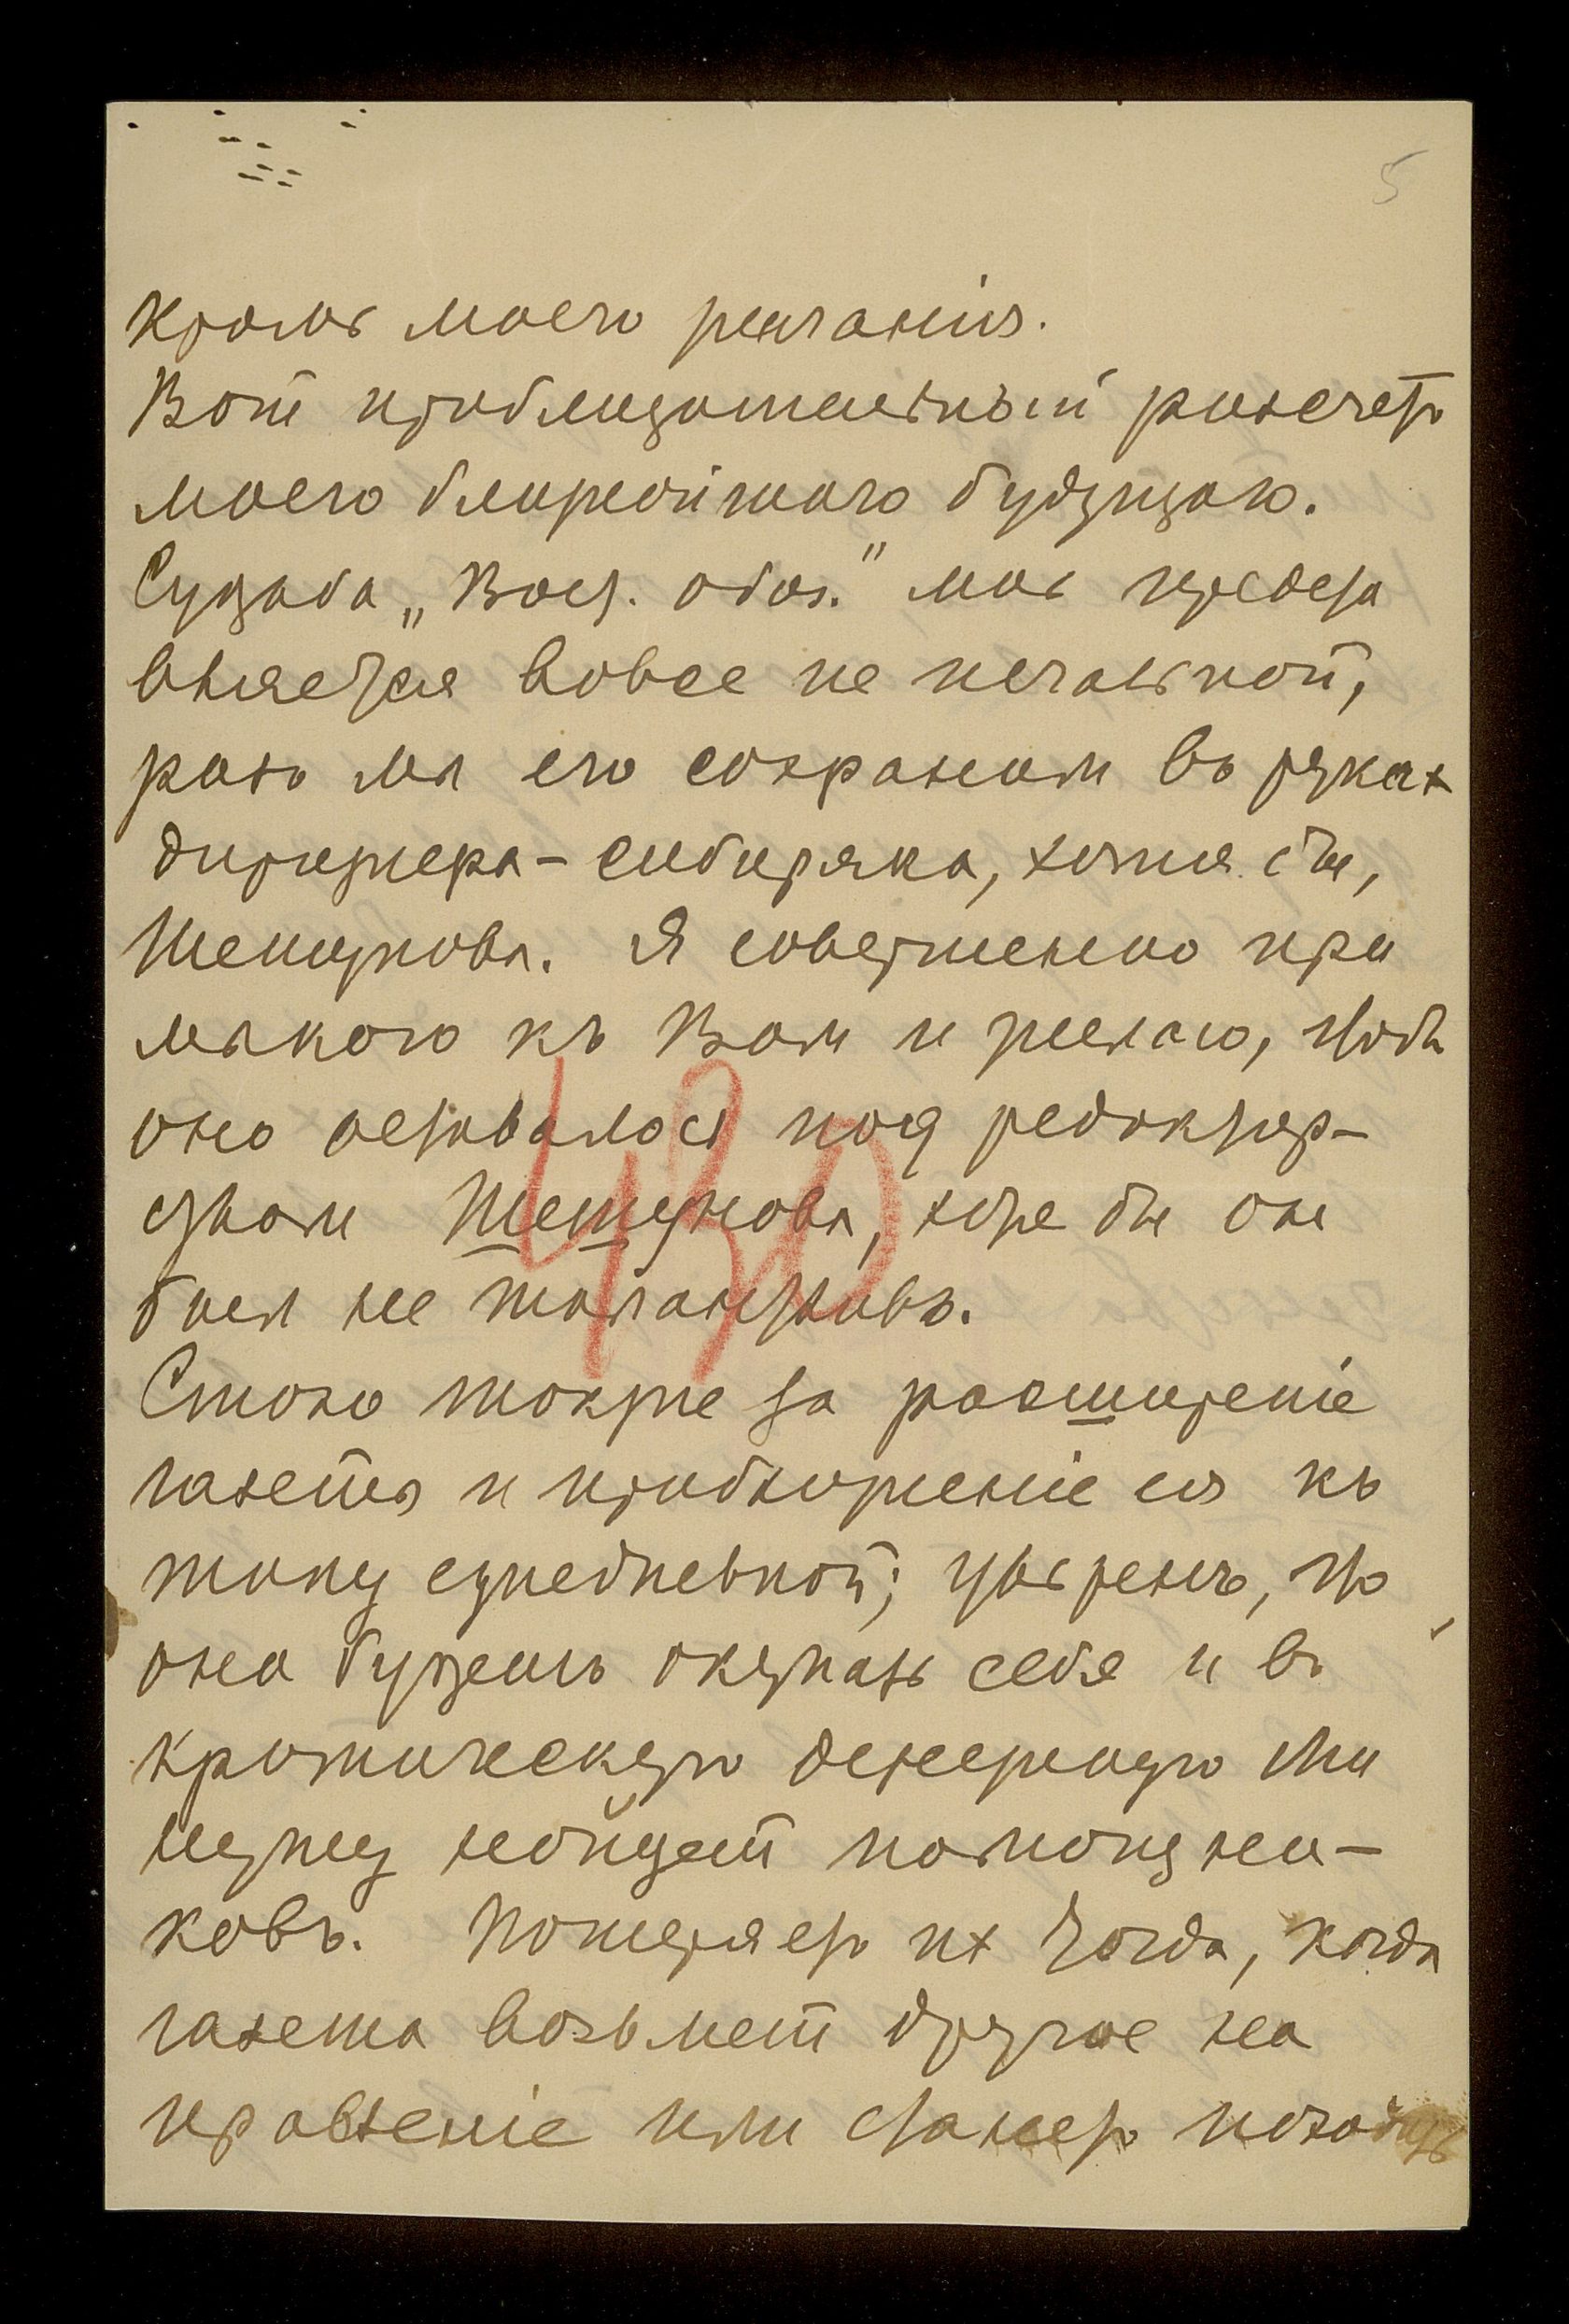 5
кромѣ моего желанія.
Вот приблизительный разсчетъ
моего ближайшаго будущаго.
Судьба „Вост. обоз." мнѣ предста
вляется вовсе не печальной,
разъ мы его сохраним въ руках
дирижера-сибиряка, хотя бы,
Шешунова. Я совершенно при
мыкаю къ Вам и желаю, чтобы
оно оставалось под редактор-
ством Шешунова, хотя бы он
был не талантливъ.
Стою также за расширеніе
газеты и приближеніе ея къ
типу ежедневной; увѣренъ, что
она будетъ окупать себя и въ
критическую денежную ми
нуту найдет помощни-
ковъ. Потеряетъ их тогда, когда
газета возьмет другое на
правленіе или станетъ
430